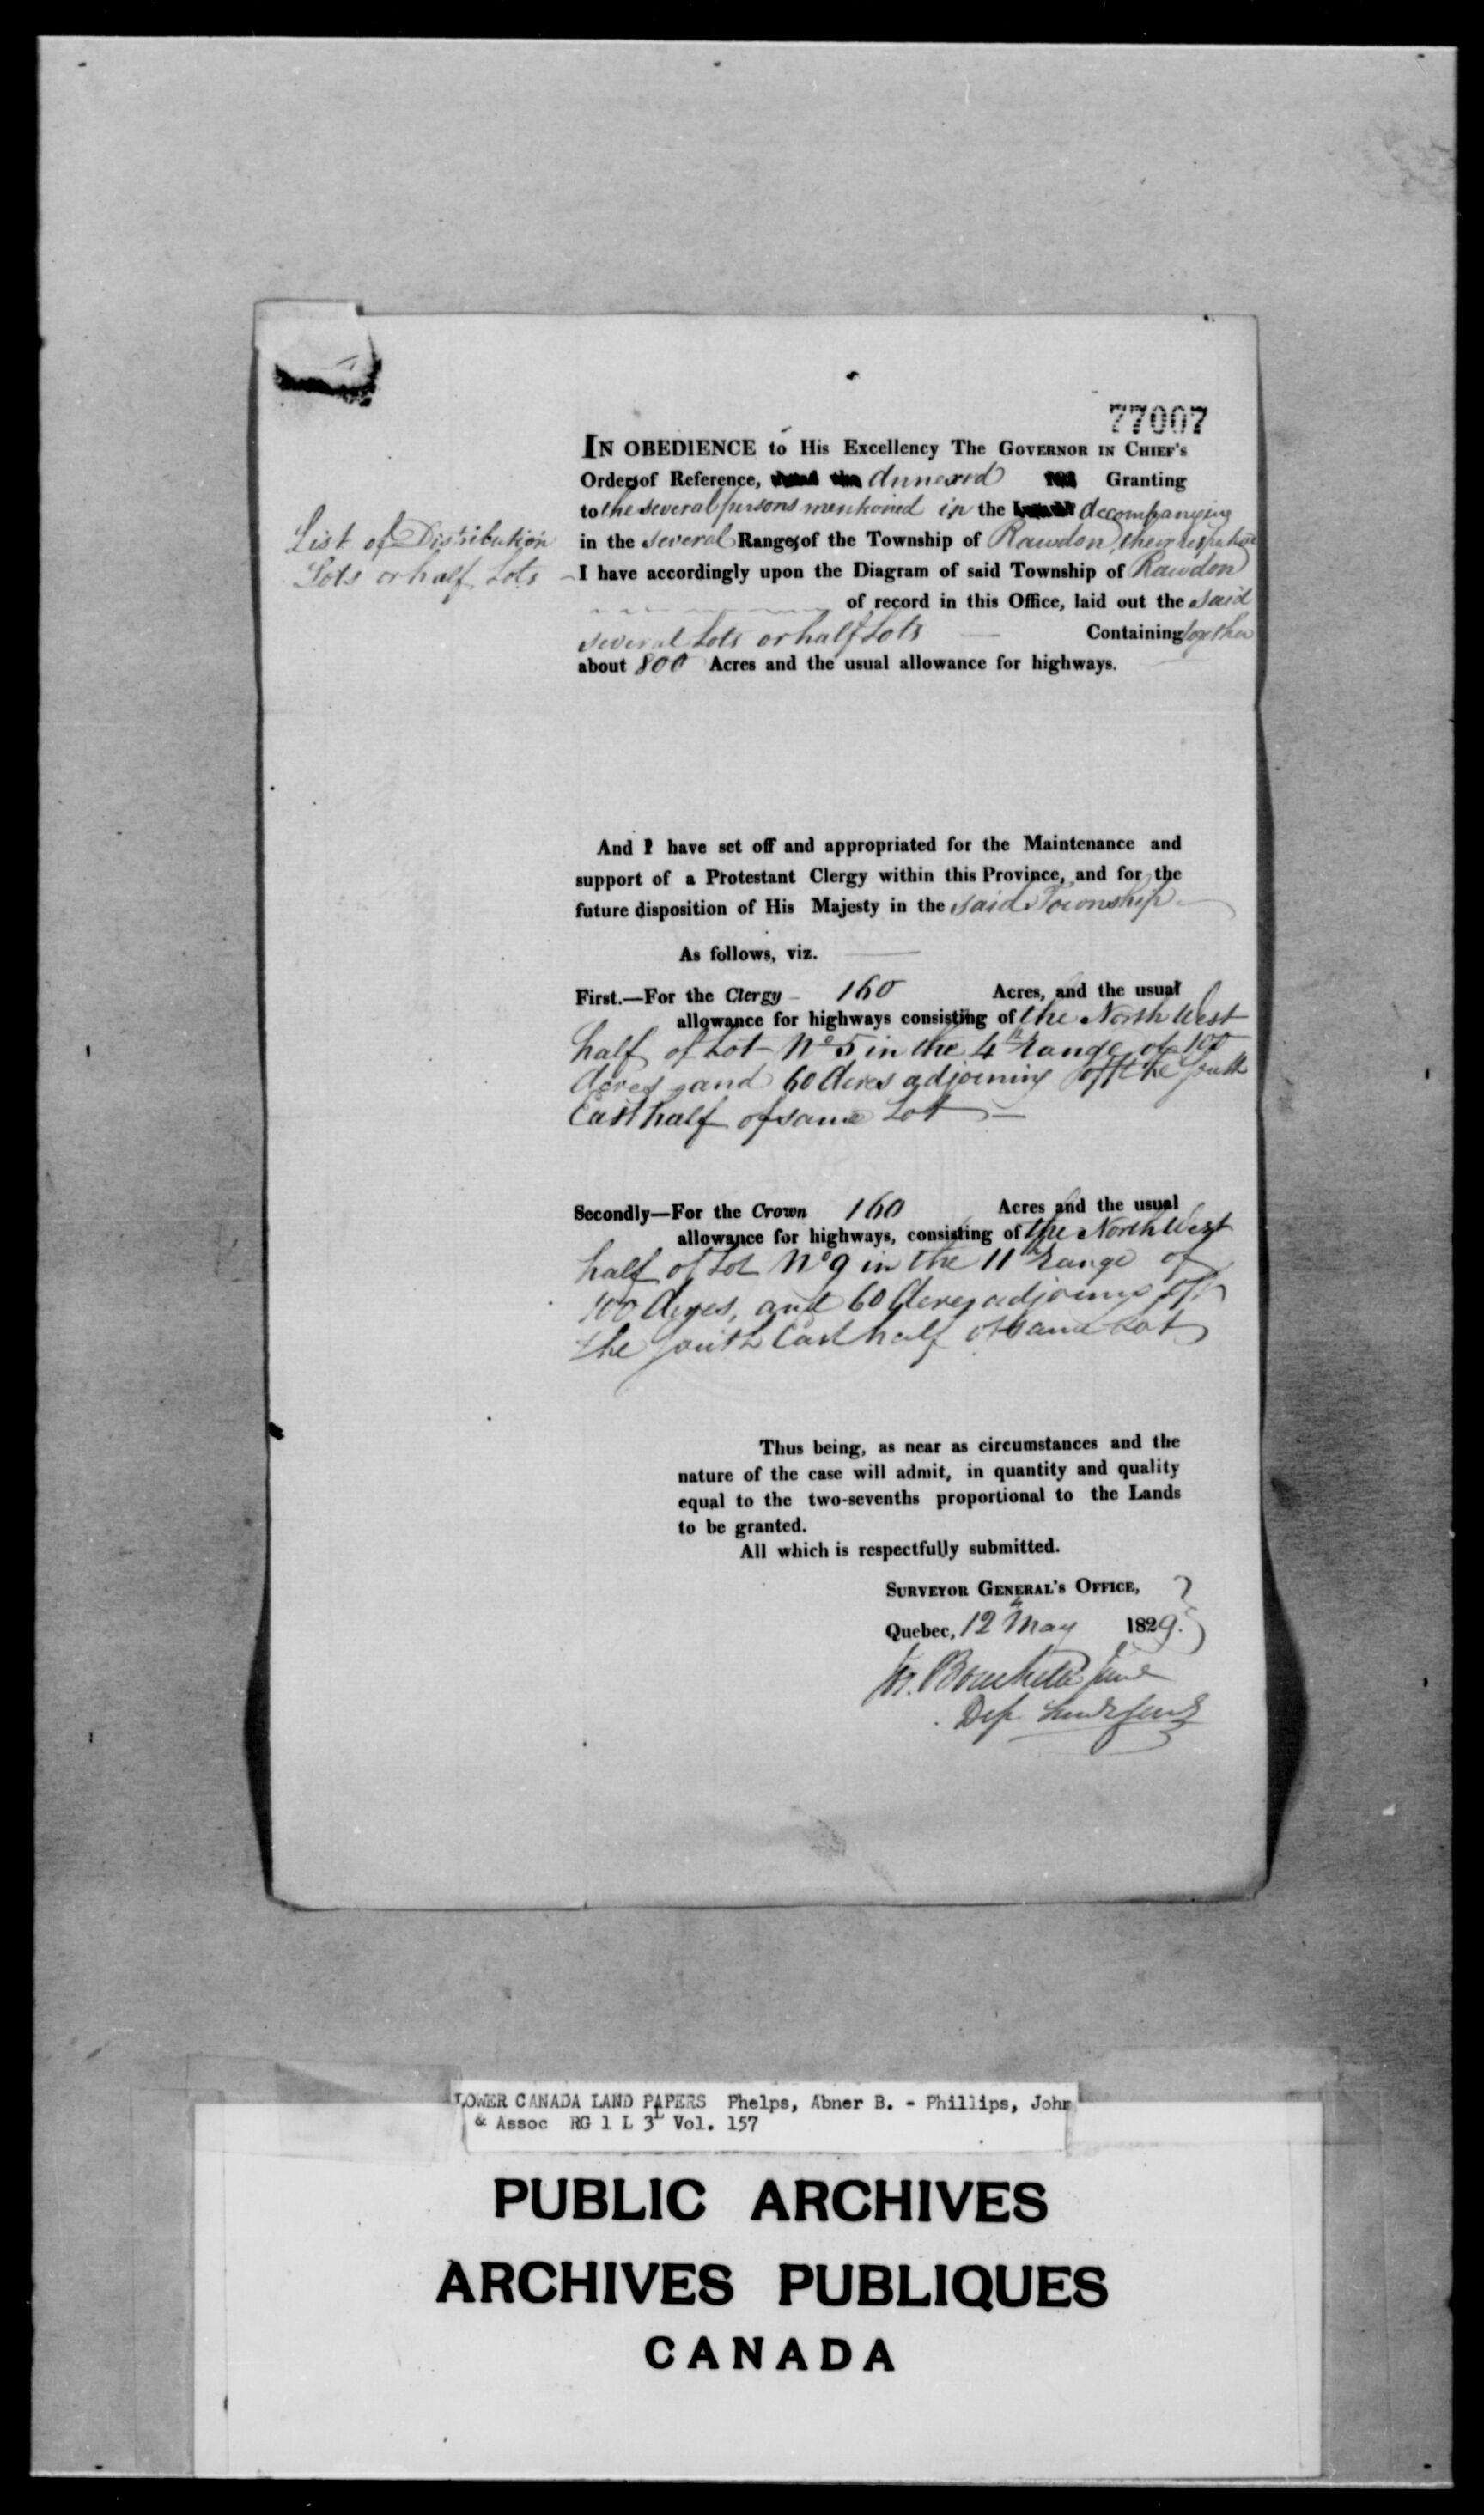 77007
IN OBEDIENCE to His Excellency The GOVERNOR IN CHIEF'S
Orders of Reference, Annexed Granting
to the several persons mentioned in the accompanying
List of Distribution
in the several Ranges of the Township of Rawdon, their respective
Lots or half Lots
I have accordingly upon the Diagram of said Township of Rawdon
of record in this Office, laid out the said
several Lots or half Lots Containing together
about 800 Acres and the usual allowance for highways.
And I have set off and appropriated for the Maintenance and
support of a Protestant Clergy within this Province, and for the
future disposition of His Majesty in the said Township
As follows, viz.
First.—For the Clergy 160 Acres, and the usual
allowance for highways consisting of the North West
half of Lot No 5 in the 4th Range of 100
Acres, and 60 Acres adjoining off the South
East half of same Lot
Secondly—For the Crown 160 Acres and the usual
allowance for highways, consisting of the North West
half of Lot No 9 in the 11th Range of
100 Acres, and 60 Acres adjoining off
the South East half of same Lot
Thus being, as near as circumstances and the
nature of the case will admit, in quantity and quality
equal to the two-sevenths proportional to the Lands
to be granted.
All which is respectfully submitted.
SURVEYOR GENERAL'S OFFICE,
Quebec, 12 May 1829.
Bouchette Junr
Dep
LOWER CANADA LAND PAPERS Phelps, Abner B. - Phillips, John
& Assoc RG 1 L 3L Vol. 157
PUBLIC ARCHIVES
ARCHIVES PUBLIQUES
CANADA